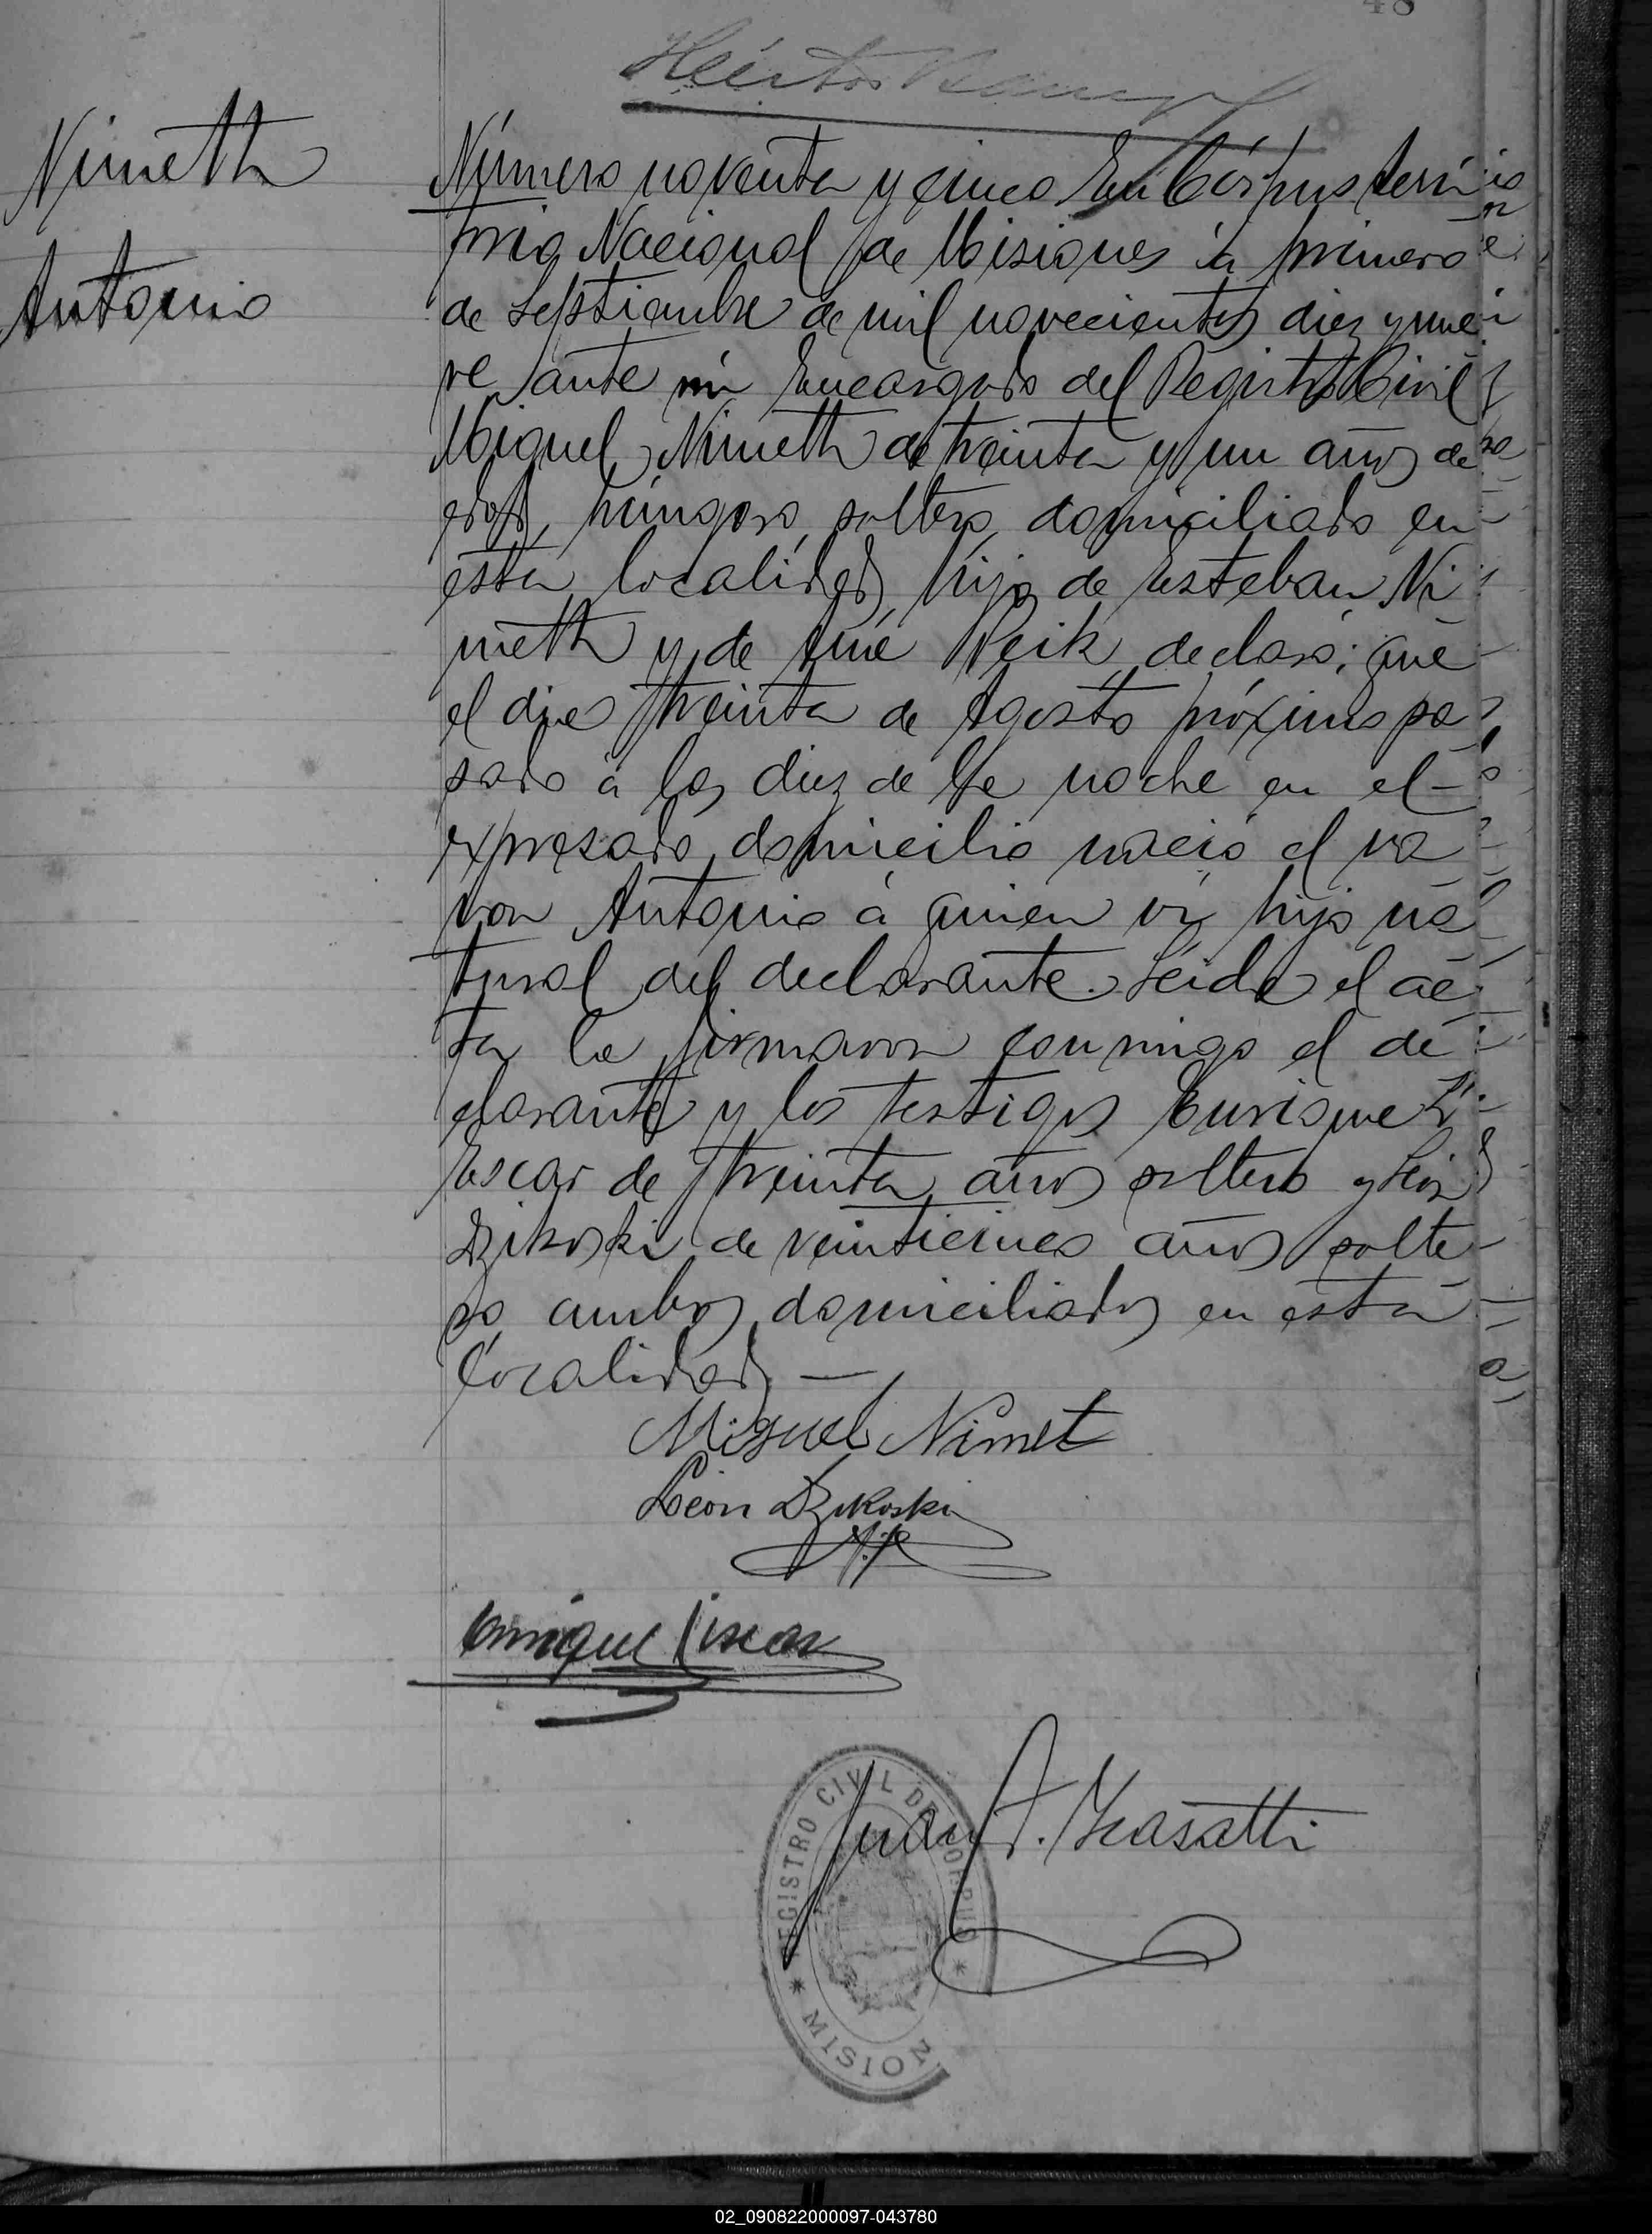 48
Héctor
Nimeth
Antonio
Número noventa y cinco En Córpus terri
torio Nacional de Misiones á primero
de Septiembre de mil novecientos diez y nue
ve ante mi Encargado del Registro Civil
Miguel Nimeth de treinta y un años de
edad, húngaro, soltero, domiciliado en
esta localidad, hijo de Esteban Ni
meth y de Reik declaró; que
el dia treinta de Agosto próximo pa
sado á las diez de la noche en el
expresado domicilio nació el va
ron Antonio á quien vi, hijo na
tural del declarante. Leida el ac
ta la firmaron conmigo el de
clarante y los testigos Enrique
Escar de treinta años soltero y León
Dzikoski de veinticinco años solte
ro ambos domiciliados en esta
localidad —
Miguel Nimet
León Dzikoski
Enrique
Juan
REGISTRO CIVIL DE CORPUS
* MISION